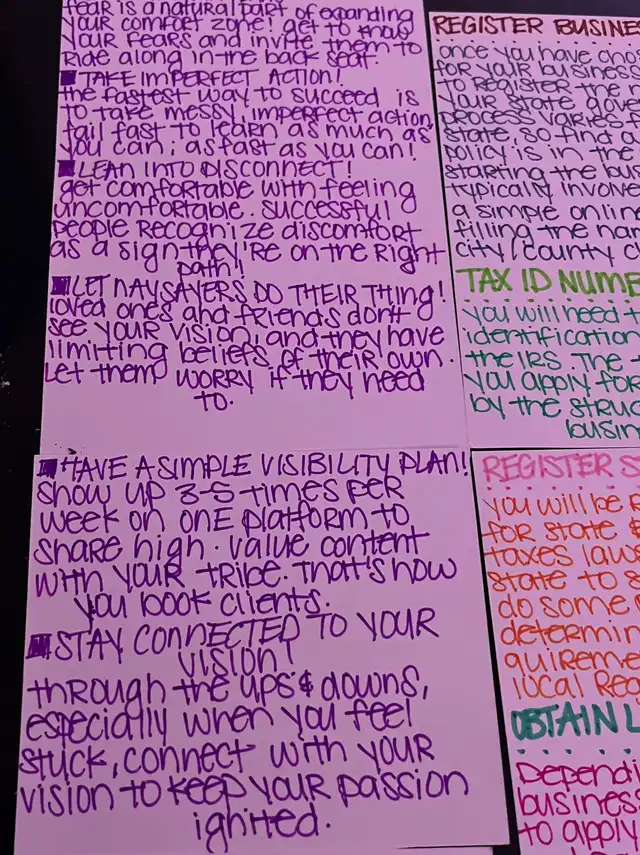 fear is a natural part of expanding
your comfort zone! get to know
your fears and invite them to
Ride along in the back seat.
TAKE IMPERFECT ACTION!
the fastest way to succeed is
to take messy, imperfect action,
fail fast to learn as much as
you can; as fast as you can!
LEAN INTO DISCONNECT!
get comfortable with feeling
uncomfortable. successful
people Recognize discomfort
as a sign they're on the Right
path!
LET NAYSAYERS DO THEIR THING!
loved ones and friends don't
see your vision, and they have
limiting beliefs of their own.
Let them worry if they need
to.
HAVE A SIMPLE VISIBILITY PLAN!
show up 3-5 times per
week on one platform to
share high-value content
with your tribe. that's how
you book clients.
STAY CONNECTED TO YOUR
VISION!
through the ups & downs,
especially when you feel
stuck, connect with your
vision to keep your passion
ignited.
REGISTER BUSINE
once you have cho
for your business
to Register the n
your state gove
process varies f
state, so find a
policy is in the
starting the bu
typically involve
a simple onlin
filling the nam
city/county c
TAX ID NUME
you will need t
identification
the IRS. The
you apply for
by the struc
busin
REGISTER S
you will be R
for state &
taxes law
state to s
do some
determin
quireme
local Reg
OBTAIN L
Dependi
business
to apply